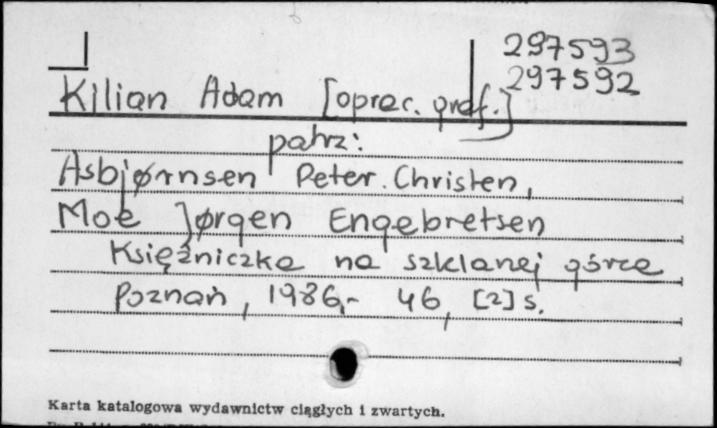 297593
297592
Kilian Adam [oprac. graf.]
patrz:
Asbjørnsen Peter Christen,
Moe Jørgen Engebretsen
Księżniczka na szklanej górze
Poznań, 1986,- 46, [2] s.
Karta katalogowa wydawnictw ciągłych i zwartych.